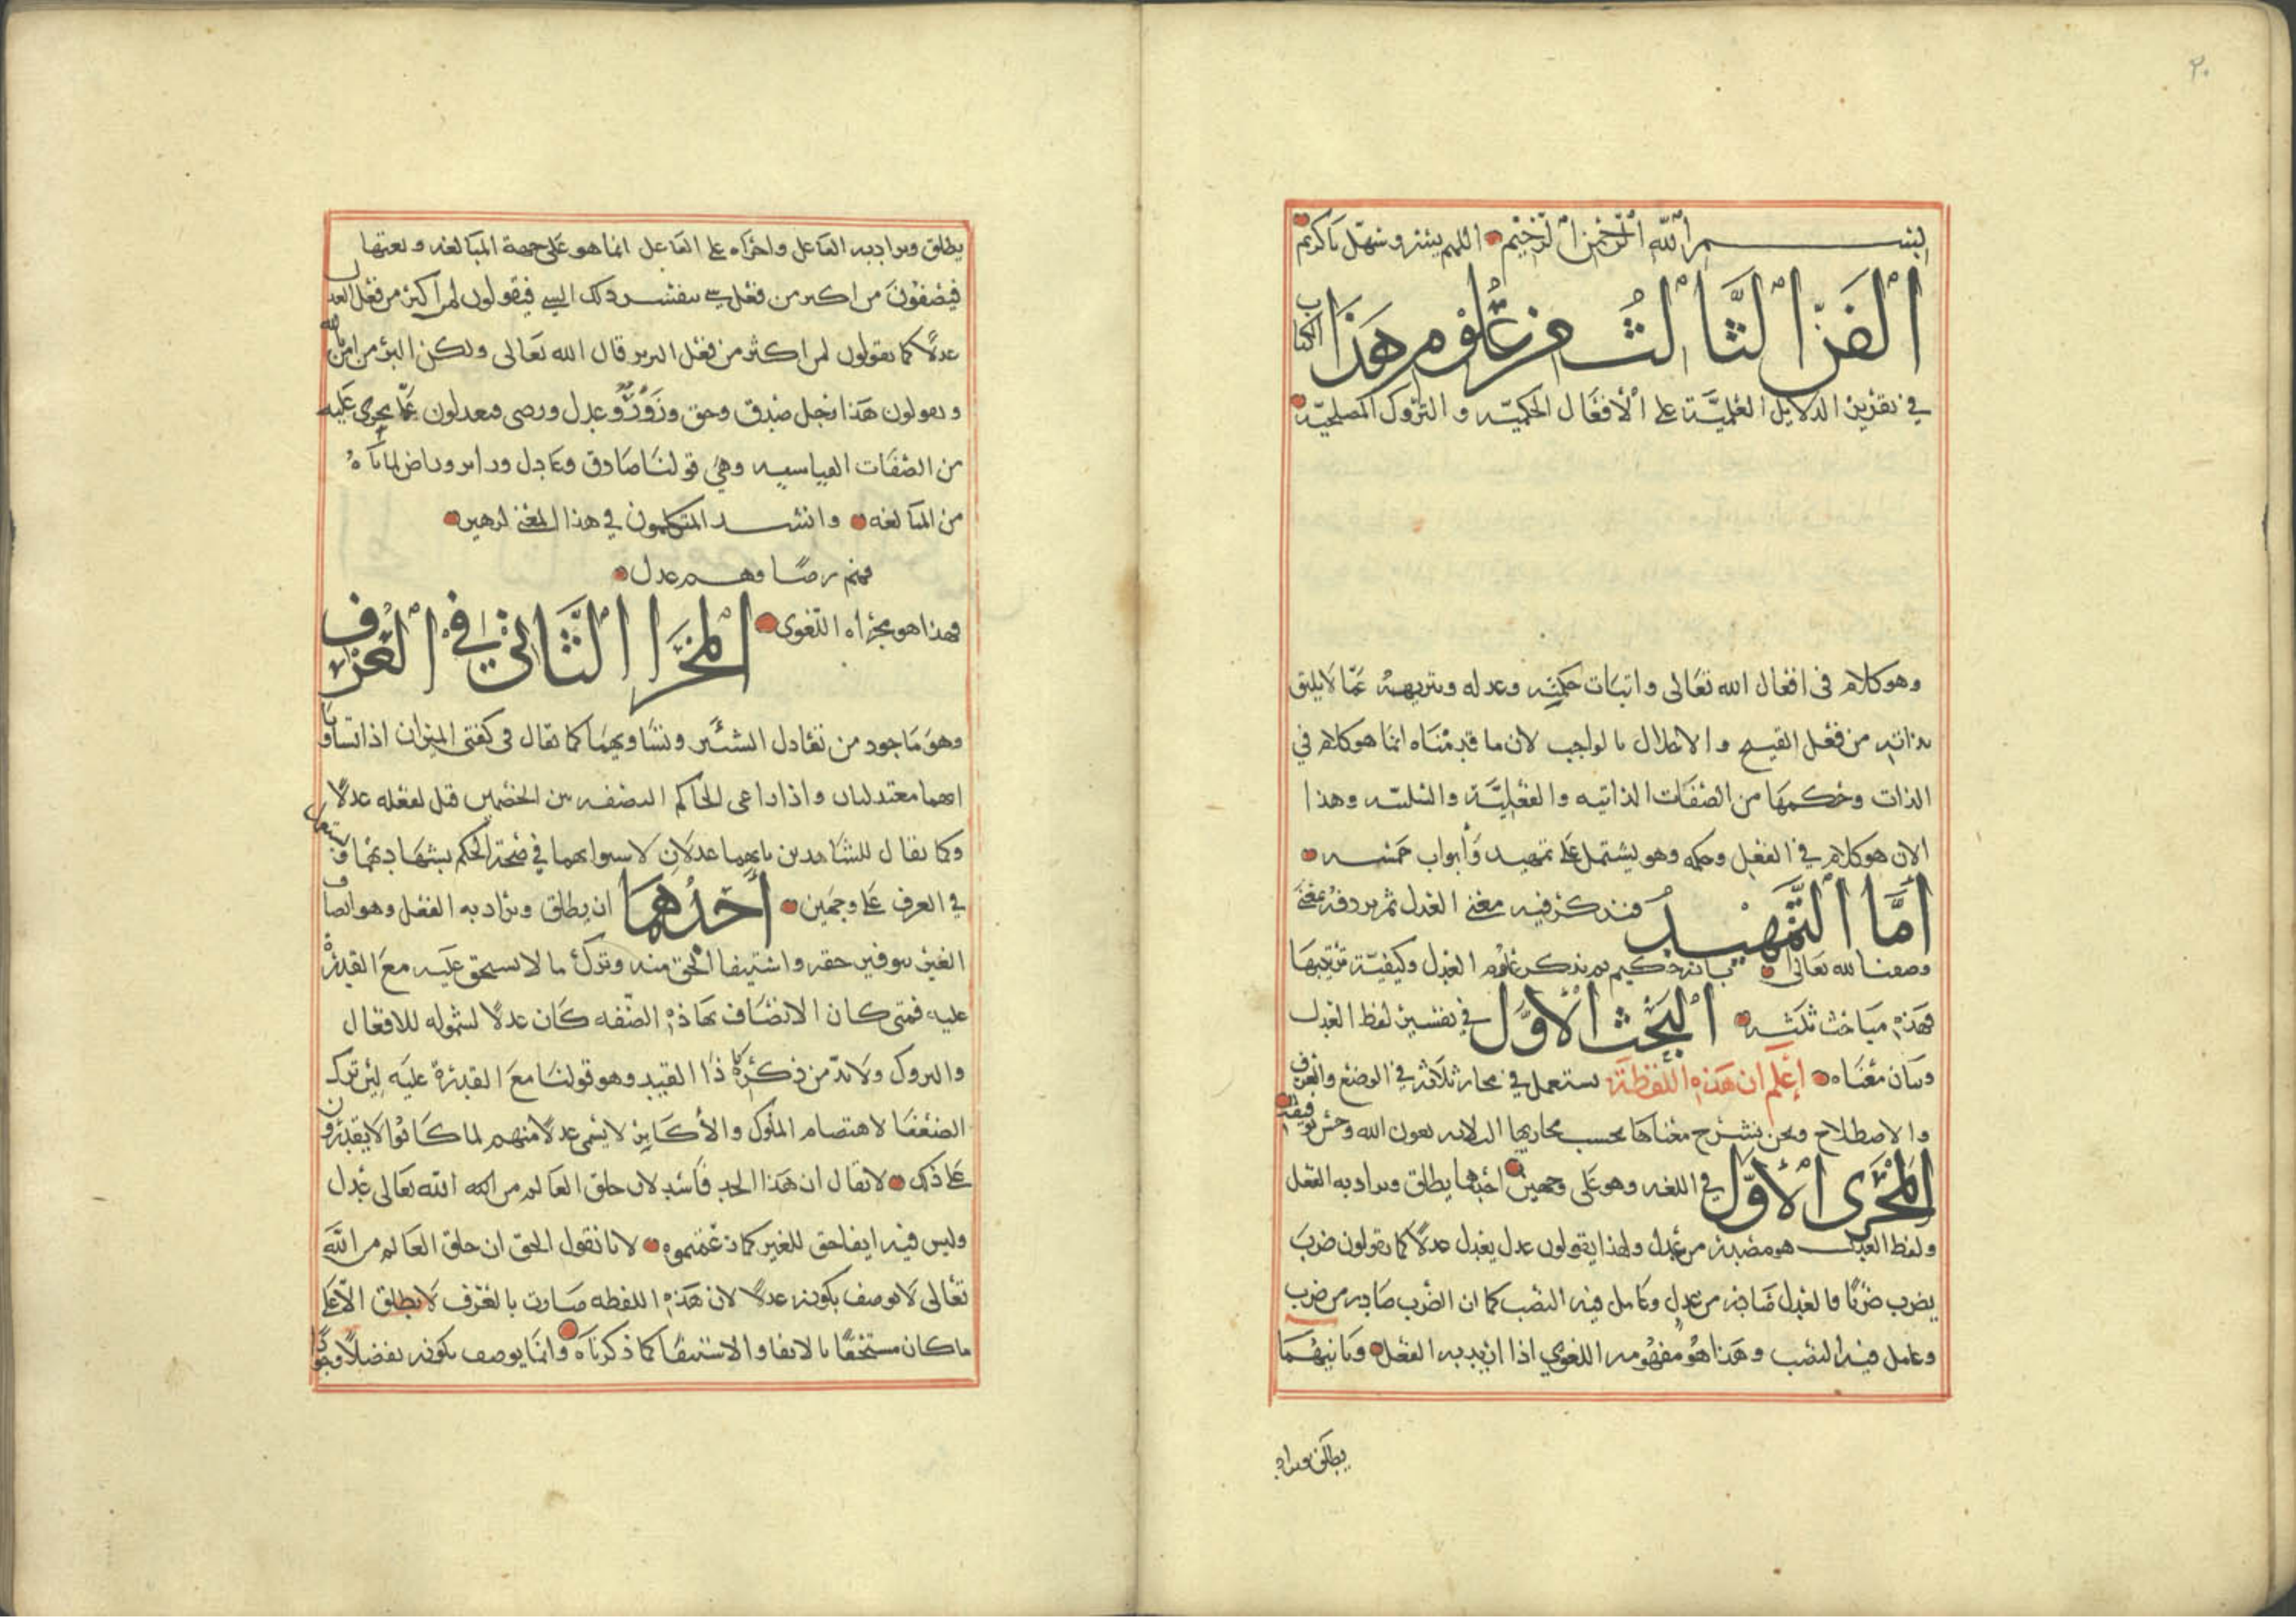 ٢٠
بسم الله الرحمن الرحيم اللهم يسر وسهل ياكريم
الفن الثالث من علوم هذا الكتاب
في تقرير الدلايل العلمية على الأفعال الحكمية والتروك المصلحية
وهو كلام في افعال الله تعالى واثبات حكمته وعدله وتنزيهه عما لا يليق
بذاته من فعل القبيح والاخلال بالواجب لان ما قدمناه انما هو كلام في
الذات وحكمها من الصفات الذاتيه والفعلية والسلبيه وهذا
الان هو كلام في الفعل وحكمه وهو يشتمل على تمهيد وأبواب خمسه
أما التمهيد فنذكر فيه معنى العدل ثم نردفه بمعنى
وصفنا لله تعالى بانه حكيم ثم نذكر علوم العدل وكيفية ترتيبها
فهذه مباحث ثلثه البحث الأول في تفسير لفظ العدل
وبيان معناه إعلم ان هذه اللفظة تستعمل في مجار ثلاثه في الوضع والعرف
والاصطلاح ونحن نشرح معناها بحسب مجاريها الثلاثه بعون الله وحسن توفيقه
المجرى الأول في اللغه وهو على وجهين أحدهما يطلق ويراد به الفعل
ولفظ العدل هو مصدر من عدل ولهذا يقولون عدل يعدل عدلا كما يقولون ضرب
يضرب ضربا فالعدل صادر من عدل وعامل فيه النصب كما ان الضرب صادر من ضرب
وعامل فيه النصب وهذا هو مفهومه اللغوي اذا اريد به الفعل وثانيهما
يطلق ويراد
يطلق ويراد به الفاعل واجراه على الفاعل انما هو على جهة المبالغه ونعتها
فيصفون من اكثر من فعل شي بنفس ذلك الشي فيقولون لمن اكثر من فعل العدل
عدلا كما يقولون لمن اكثر من فعل البر بر قال الله تعالى ولكن البر من امن بالله
ويقولون هذا رجل صدق وحق وزور وعدل ورضى فيعدلون عما يجري عليه
من الصفات القياسيه وهي قولنا صادق وعادل وزاير وراض لما نراه
من المبالغه وانشد المتكلمون في هذا المعنى لزهير
فهم رضا وهم عدل
فهذا هو مجراه اللغوي المجرا الثاني في العرف
وهو ماخوذ من تعادل الشيئين وتساويهما كما يقال في كفتي الميزان اذا تساويا
انهما معتدلتان واذا راعى الحاكم النصفه بين الخصمين قيل لفعله عدلا
وكما يقال للشاهدين بانهما عدلان لاستوايهما في صحة الحكم بشهادتهما ويستعمل
في العرف على وجهين أحدهما ان يطلق ويراد به الفعل وهو انصاف
الغير بتوفير حقه واستيفا الحق منه وترك ما لا يستحق عليه مع القدرة
عليه فمتى كان الاتصاف بهاذه الصفه كان عدلا لشموله للافعال
والتروك ولا بد من ذكرنا هذا القيد وهو قولنا مع القدرة عليه لئن ترك
الضعفا لاهتضام الملوك والأكابر لا يسمى عدلا منهم لما كانوا لا يقدرون
على ذلك لا يقال ان هذا الحد فاسد لان خلق العالم من جهة الله تعالى عدل
وليس فيه ايفا حق للغير كما زعمتموه لانا نقول الحق ان خلق العالم من الله
تعالى لا يوصف بكونه عدلا لان هذه اللفظه صارت بالعرف لا يطلق الا على
ما كان مستحقا بالايفا والاستيفا كما ذكرناه وانما يوصف بكونه تفضلا وجودا